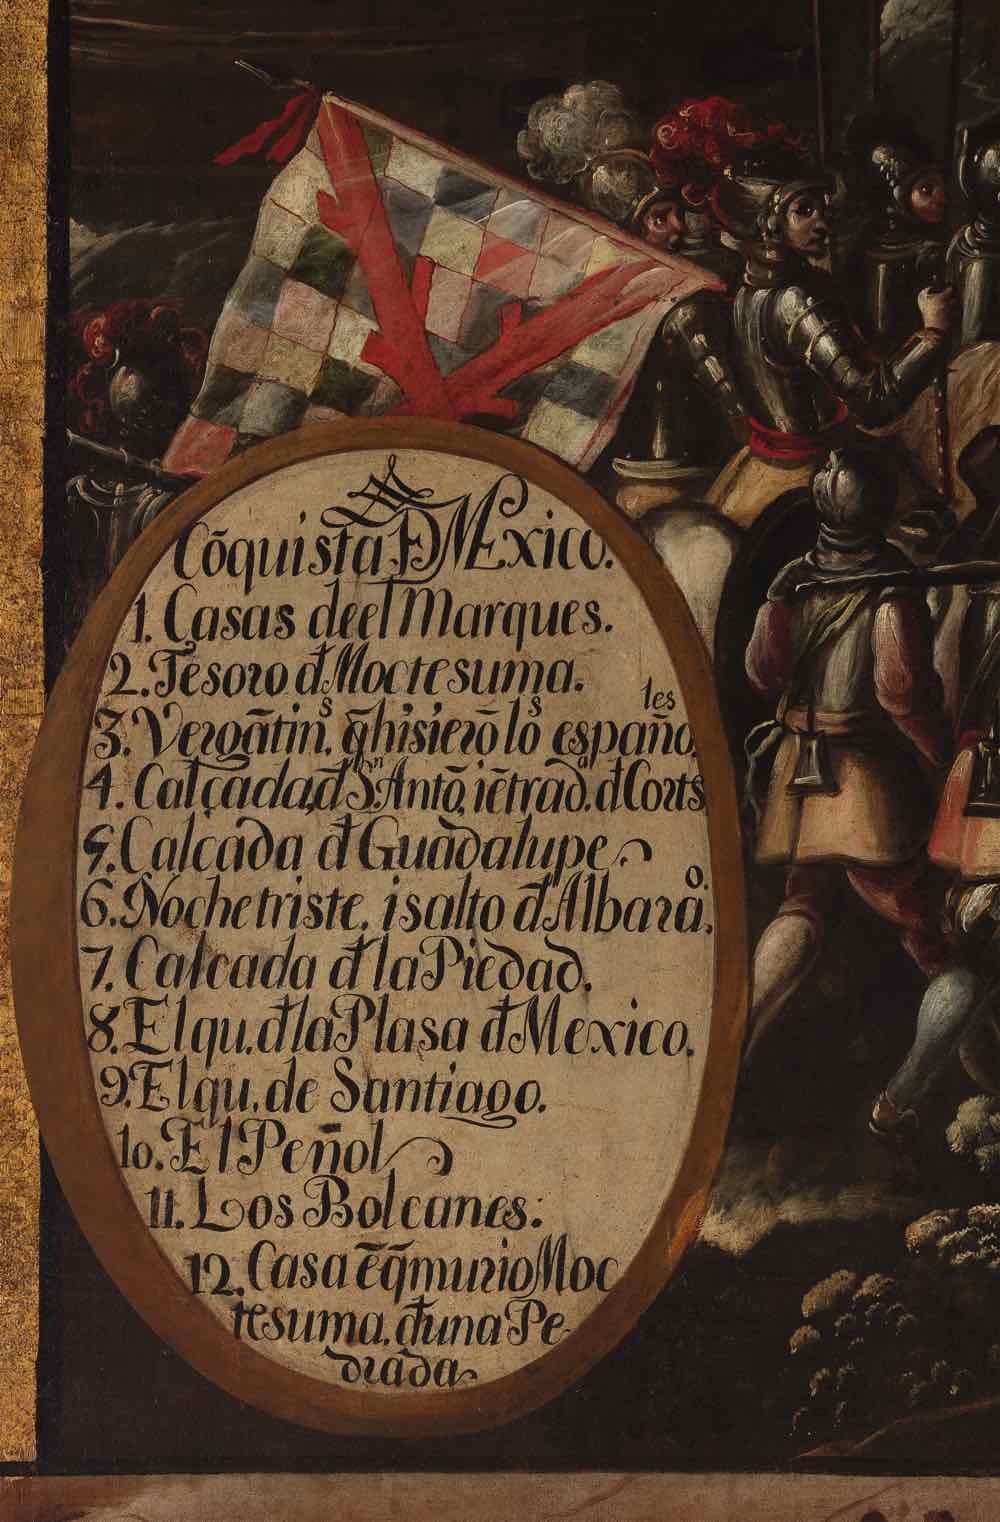 Cõquista D Mexico.
1. Casas deel Marques.
2. Tesoro đ Moctesuma.
3. Vergãtin^s. q̃ hisierõ lo^s españo^les.
4. Calçada, đ S^n. Antõ, iẽtrad^a. đ Corts
5. Calcada đ Guadalupe
6. Noche triste. i salto đ Albarã^o.
7. Calcada đ la Piedad.
8. El qu. đ la Plasa đ Mexico.
9. El qu. de Santiago.
10. El Peñol
11. Los Bolcanes:
12. Casa ẽ q̃ murio Moc
tesuma. đ una Pe
drada